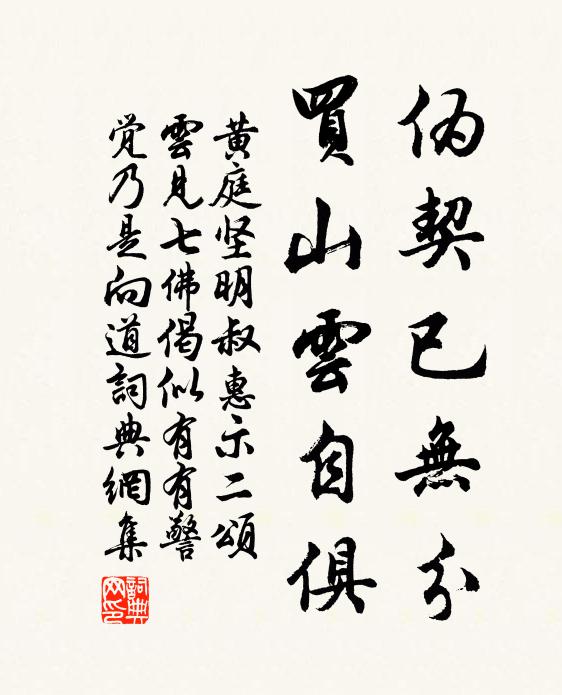 偽契已無分
買山雲自俱
黄庭坚明叔惠示二頌
雲見七佛偈似有有警
觉乃是向道詞典網集